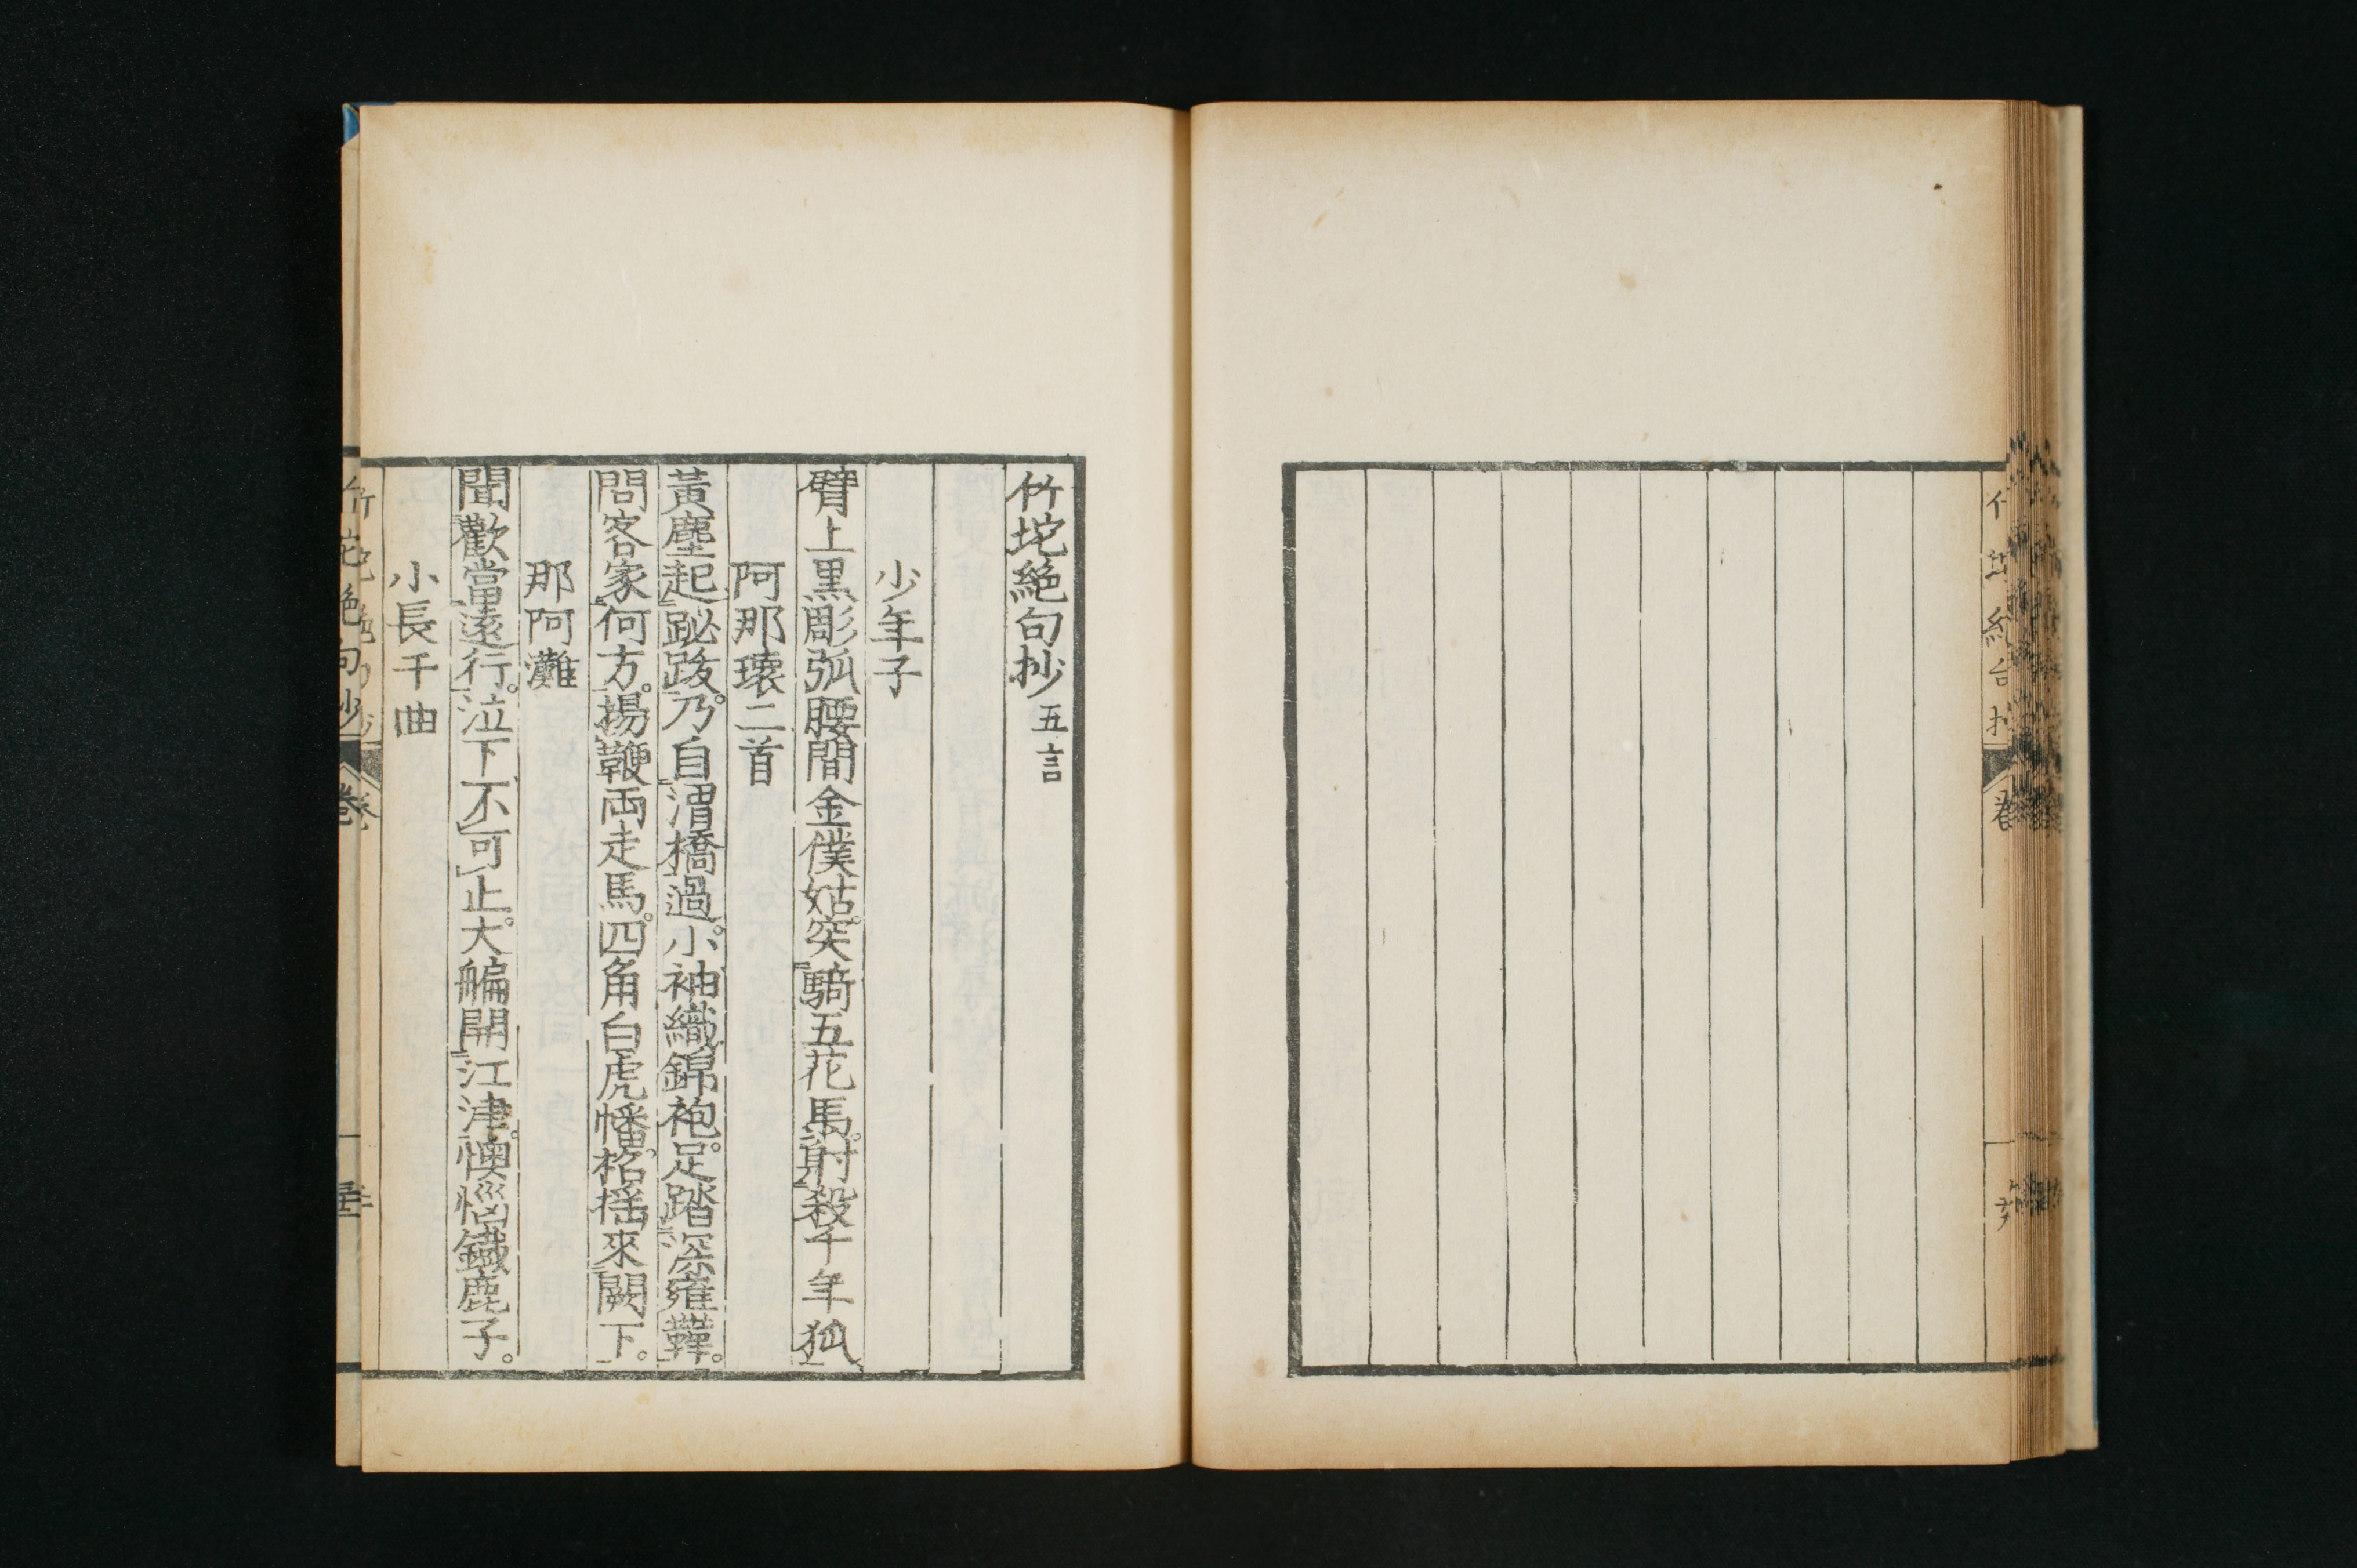 竹垞絕句抄 五言
少年子
臂上黒彫弧腰間金僕姑。突騎五花馬。射殺千年狐
阿那瓌二首
黃塵起跛跛。乃自渭橋過。小袖織錦袍。足踏深雍鞾。
問客家何方。揚鞭両走馬。四角白虎幡。招揺來闕下。
那阿灘
聞歡當遠行。泣下不可止。大艑開江津。懊惱鐵鹿子。
小長干曲